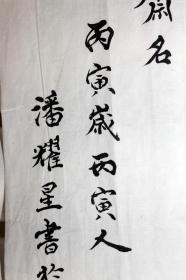 齋名
丙寅歲丙寅人
潘耀星書於